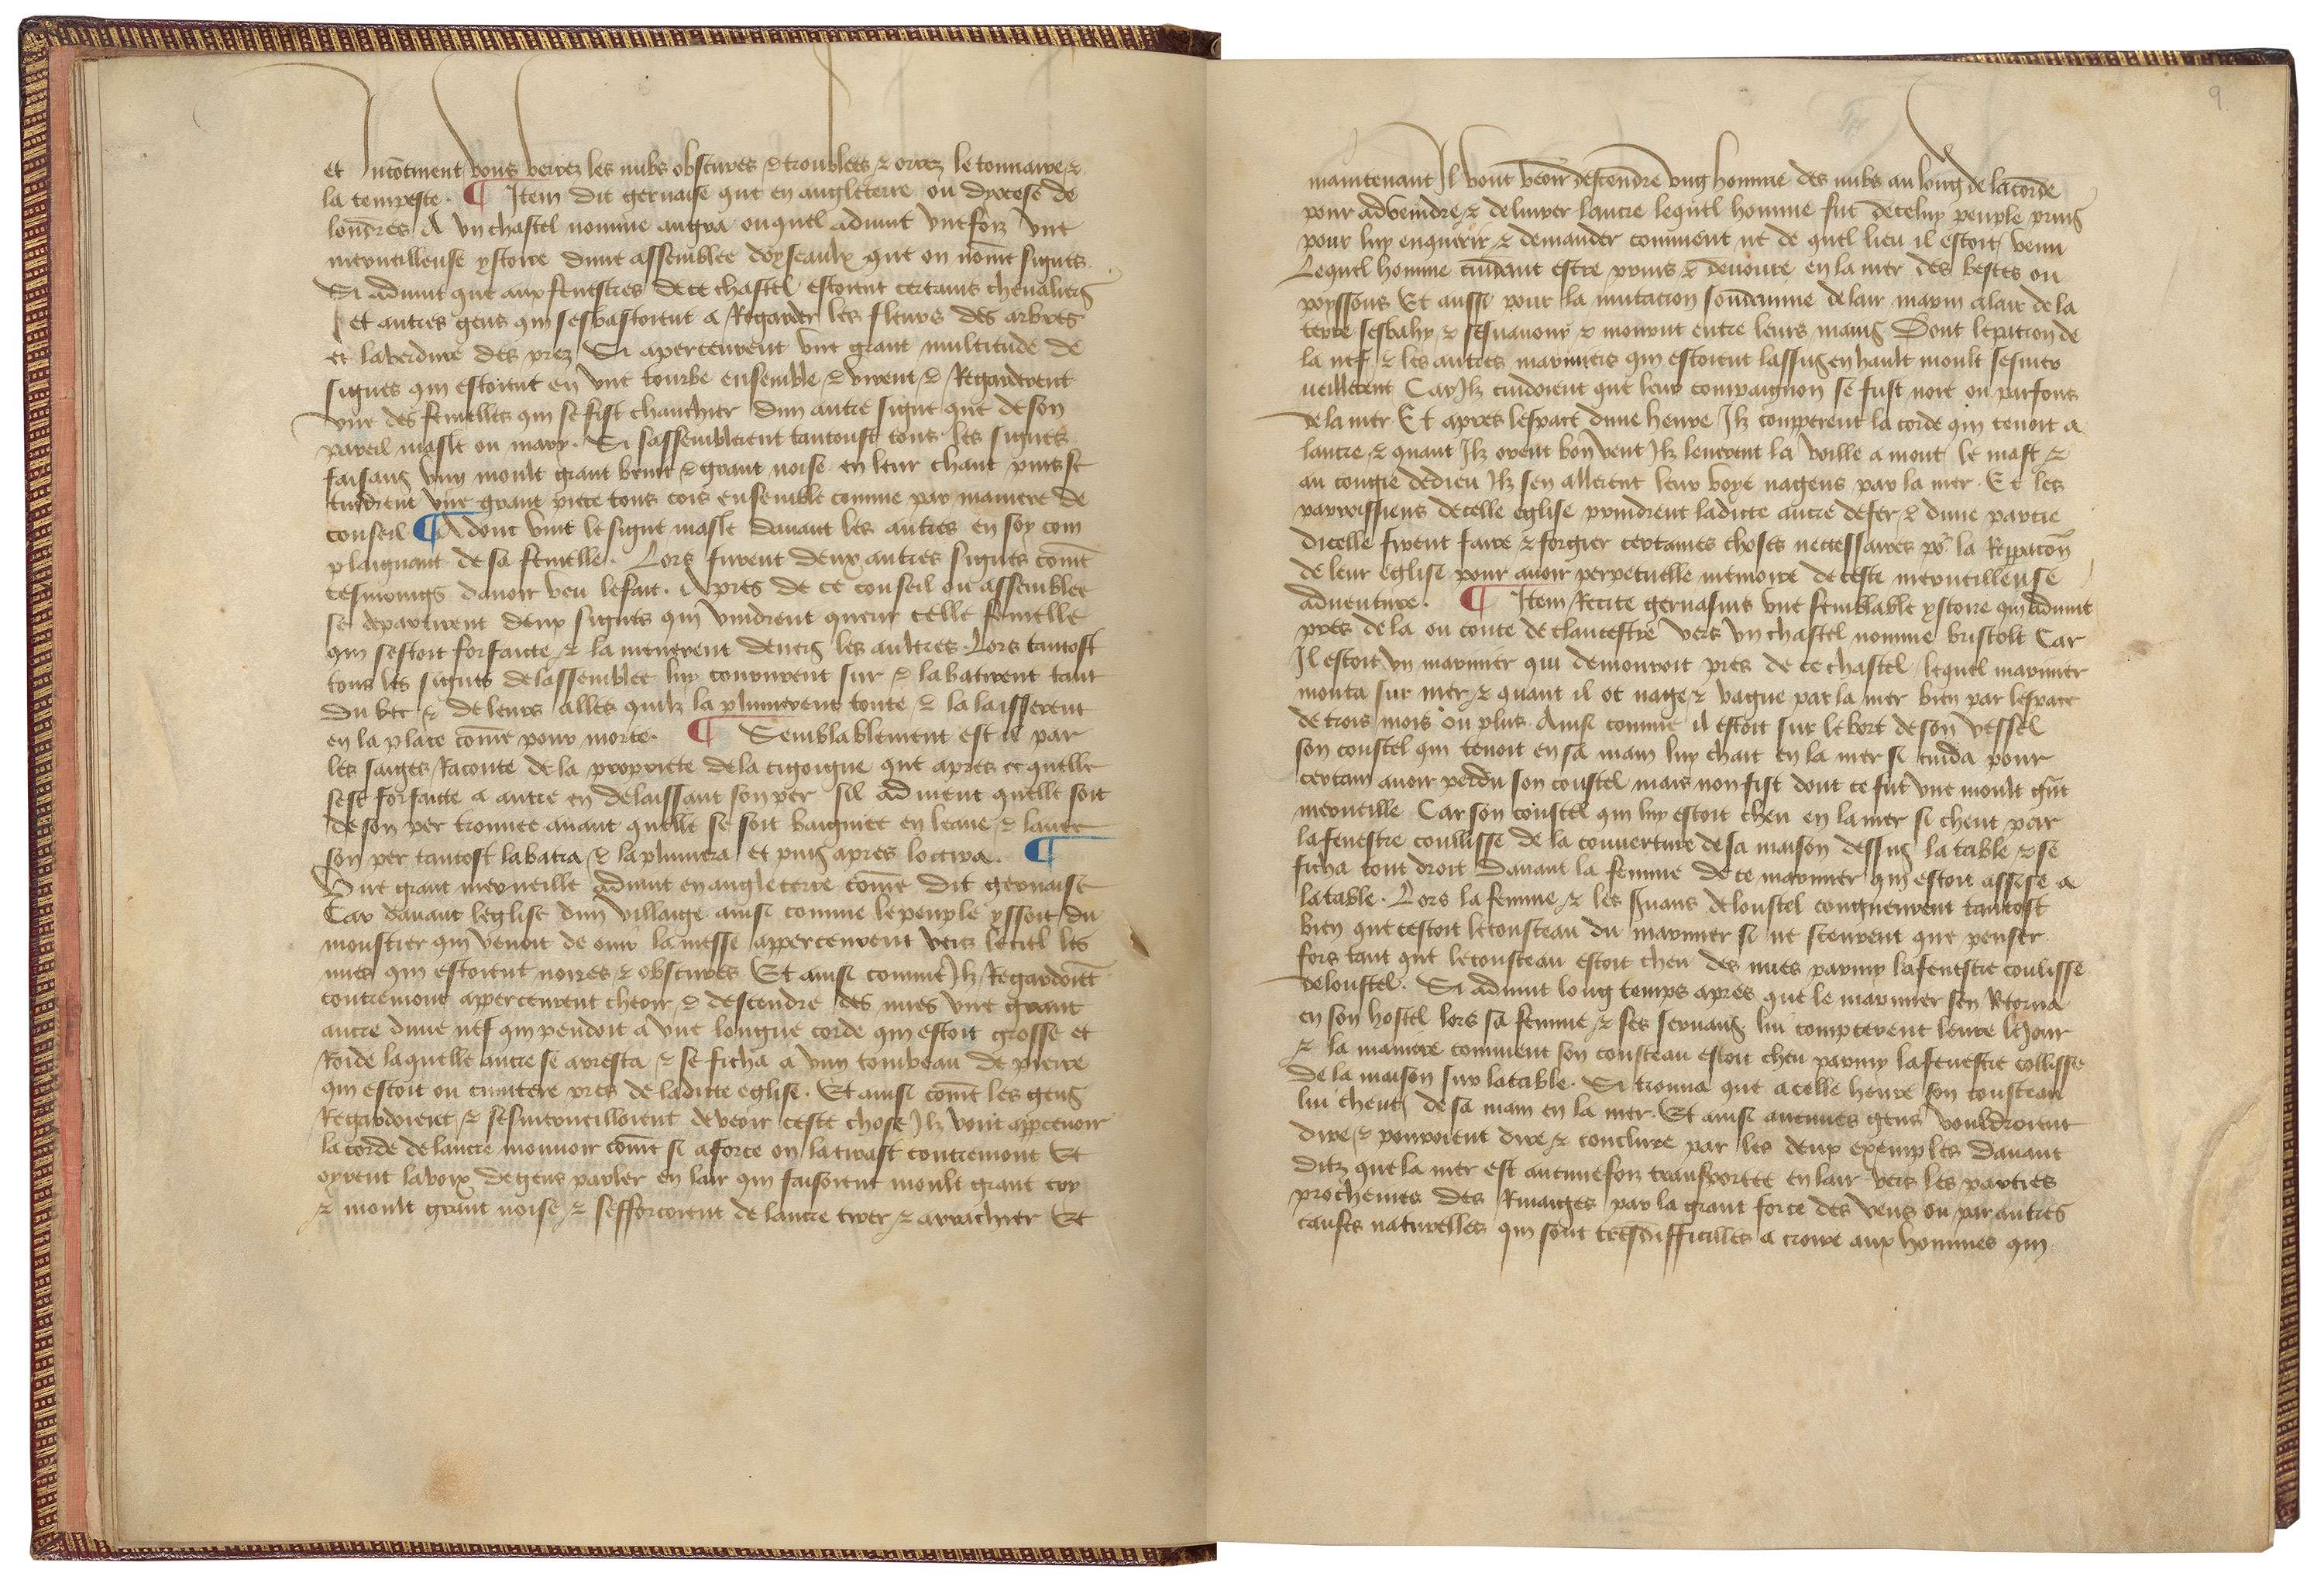 et incotment vous verrez les nubs obscures & troublees & orrez le tonnairre &
la tempeste. ¶ Item dit gervaise que en angleterre ou dyocese de
londres A vn chastel nomme angra ouquel aduint vne foiz vne
merveilleuse ystoire dune assemblee doyseaulx que on nome signes.
Si aduint que aux fenestres de ce chastel estoient certains chevaliers
et autres gens qui sesbastoient a Regarder les fleurs des arbres
et la verdure des prez Si aperceurent vne grant multitude de
signes qui estoient en vne tourbe ensemble & virent & Regarderent
vne des femelles qui se fist chauchier dun autre signe que de son
pareil masle ou mary. Si sassemblerent tantoust tous les signes
faisans vng moult grant bruit & grant noise en leur chant puis se
tindrent vne grant piece tous cois ensemble comme par maniere de
conseil ¶ Adonc vint le signe masle davant les autres en soy com
plaignant de sa femelle. Lors furent deux autres signes come
tesmoings davoir veu le fait. Apres de ce conseil ou assemblee
se departirent deux signes qui vindrent querir celle femelle
qui sestoit forfaicte & la menerent devers les aultres. Lors tantost
tous les signes de lassemblee luy coururent sur & la batirent tant
du bec & de leurs alles quilz la plumerent toute & la laisserent
en la place come pour morte. ¶ Semblablement est il par
les saiges Raconte de la propriete de la cigoigne que apres ce quelle
sest forfaicte a autre en delaissant son per sil advient quelle soit
de son per trouvee avant quelle se soit baignee en leaue & lavee
son per tantost la batra & la plumera et puis apres loccira. ¶
Vne grant merveille aduint en angleterre come dit gervaise
Car davant leglise dun villaige ainsi comme le peuple yssoit du
moustier qui venoit de ouir la messe apperceurent vers le ciel les
nues qui estoient noires & obscures Et ainsi comme Ilz Regardoiet
contremont apperceurent cheoir & descendre des nues vne grant
ancre dune nef qui pendoit a vne longue corde qui estoit grosse et
Roide laquelle ancre se arresta & se ficha a vng tombeau de pierre
qui estoit ou cimitere pres de ladicte eglise. Et ainsi come les gens
Regardoient & sesmerveilloient de veoir ceste chose Ilz vont appercevoir
la corde de lancre mouvoir come si a force on la tirast contremont Et
oyrent la voix de gens parler en lair qui faisoient moult grant cry
& moult grant noise & sefforcoient de lancre tirer & arrachier Et
9
maintenant Il vont veoir descendre vng homme des nubs au long de la corde
pour advenir & delivrer lancre lequel homme fut de celuy peuple prins
pour luy enquerir & demander comment ne de quel lieu il estoit venu
Lequel homme cuidant estre prins & devoure en la mer des bestes ou
poyssons Et aussi pour la mutacion soudainne de lair marin a lair de la
terre sesbahy & sesvanouy & mourut entre leurs mains Dont le patron de
la nef & les autres mariniers qui estoient lassus en hault moult sesmer
veillerent Car Ilz cuidoient que leur compaignon se fust noie ou parfons
de la mer Et apres lespace dune heure Ilz coupperent la corde qui tenoit a
lancre & quant Ilz orent bon vent Ilz leverent la voille a mont le mast &
au congie de dieu Ilz sen allerent leur voye nagens par la mer. Et les
parroissiens de celle eglise prindrent ladicte ancre de fer & dune partie
dicelle firent faire & forgier certaines choses neccessaires po la Repacon
de leur eglise pour avoir perpetuelle memoire de ceste merveilleuse
adventure. ¶ Item Recite gervasius vne semblable ystoire qui aduint
pres de la ou conte de claucestre vers vn chastel nomme bristolt Car
Il estoit vn marinier qui demouroit pres de ce chastel lequel marinier
monta sur mer & quant il ot nage & vague par la mer bien par lespace
de trois mois ou plus. Ainsi comme il estoit sur le bort de son vessel
son coustel qui tenoit en sa main luy chait en la mer si cuida pour
certain avoir perdu son coustel mais non fist dont ce fut vne moult grat
merveille Car son coustel qui luy estoit cheu en la mer si cheut par
la fenestre coullisse de la couverture de sa maison dessus la table & se
ficha tout droit davant la femme de ce marinier qui estoit assise a
la table. Lors la femme & les servans de loustel congneurent tantost
bien que cestoit le cousteau du marinier si ne sceurent que penser
fors tant que le cousteau estoit cheu des nues parmy la fenestre coulisse
de loustel. Si aduint long temps apres que le marinier sen Rtorna
en son hostel lors sa femme & ses servans lui compterent leure le Jour
& la maniere comment son cousteau estoit cheu parmy la fenestre collisse
de la maison sur la table. Si trouva que a celle heure son cousteau
lui cheut de sa main en la mer. Et ainsi aucunes gens vouldroient
dire & pourroient dire & conclure par les deux exemples davant
ditz que la mer est aucunefoiz transportee en lair vers les parties
prochaines des Rivaiges par la grant force des vens ou par autres
causes naturelles qui sont tresdifficilles a croire aux hommes qui